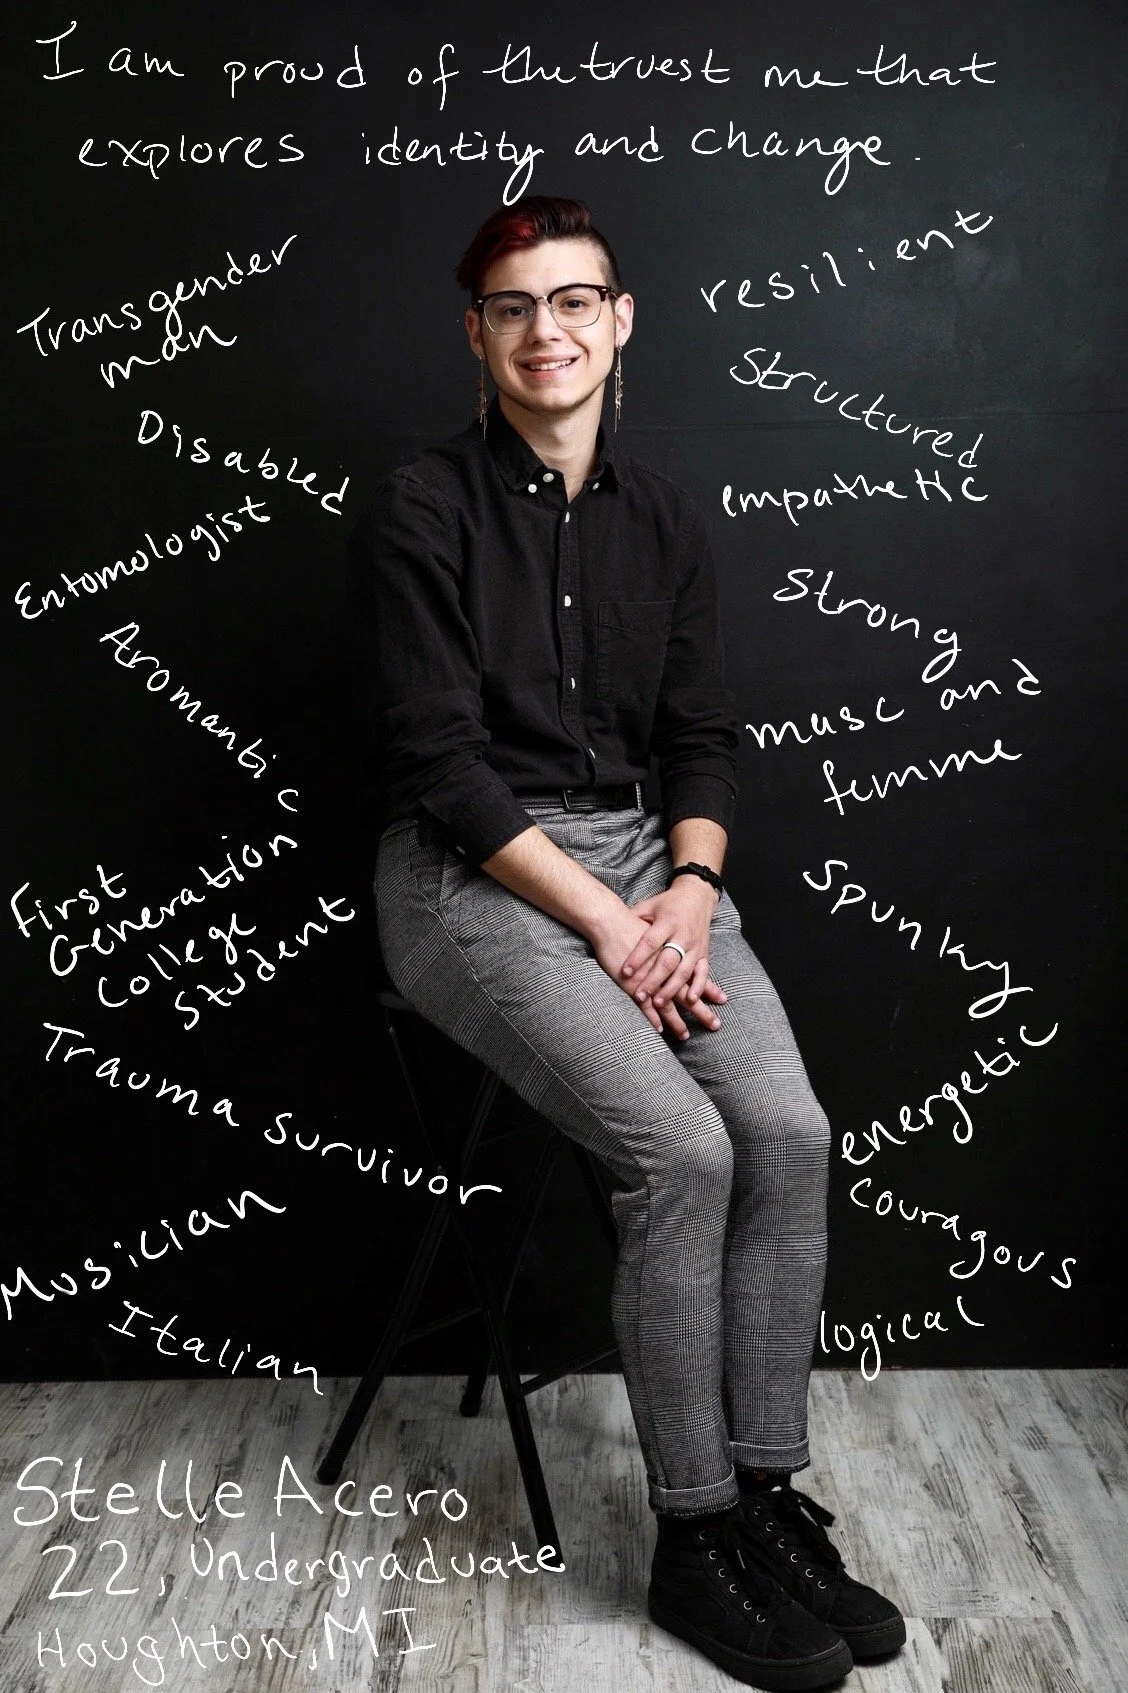 I am proud of the truest me that
explores identity and change.
Transgender
man
Disabled
Entomologist
Aromantic
First
Generation
College
Student
Trauma survivor
Musician
Italian
resilient
Structured
empathetic
Strong
masc and
femme
Spunky
energetic
couragous
logical
Stelle Acero
22, Undergraduate
Houghton, MI